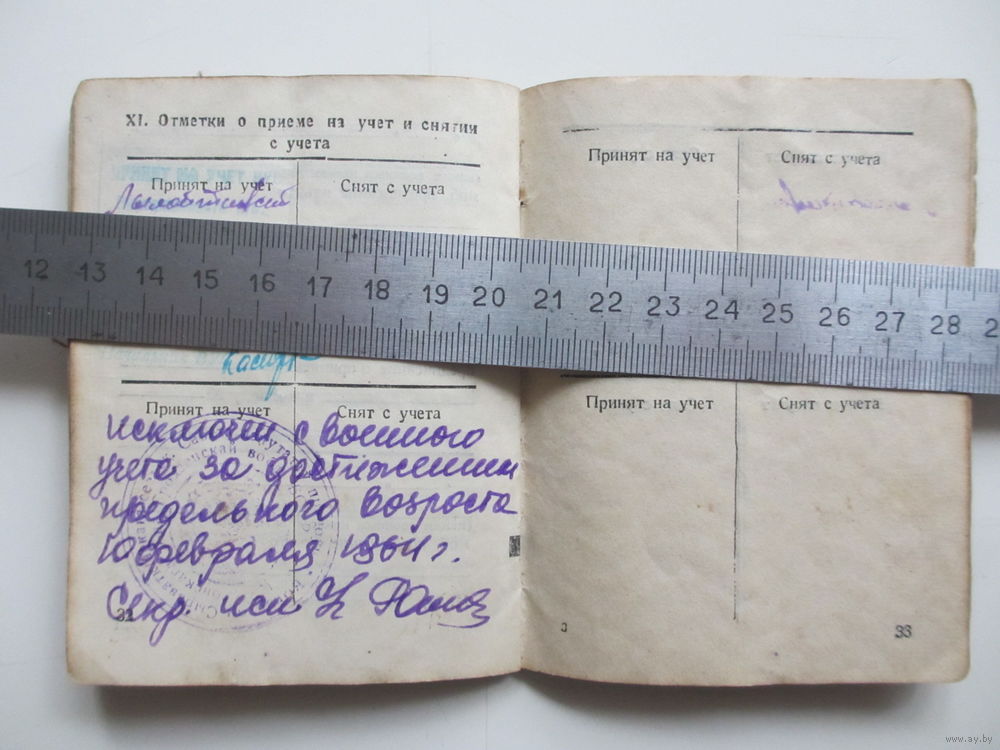 XI. Отметки о приеме на учет и снятии
с учета
ПРИНЯТ НА УЧЕТ
Принят на учет Снят с учета
12 13 14 15 16 17 18 19 20 21 22 23 24 25 26 27 28 2
Принят на учет Снят с учета
исключен с военного
учета за достижением
предельного возроста
10 февраля 1964 г.
Секр.
32
Принят на учет Снят с учета
Принят на учет Снят с учета
33
www.ay.by